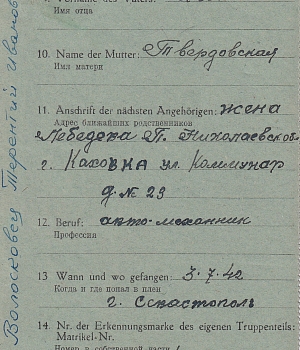 Имя отца
10. Name der Mutter: Твердовская
Имя матери
11. Anschrift der nächsten Angehörigen: жена
Адрес ближайших родственников
Лебедева П. Николаевской
г. Каховка ул. Коммунар
д. № 23
12. Beruf: авто-механник
Профессия
13 Wann und wo gefangen: 3.7.42
Когда и где попал в плен
г. Севастополь
14. Nr. der Erkennungsmarke des eigenen Truppenteils:
Matrikel-Nr.
Номер в собственной части
Волосковец Терентий Иванов